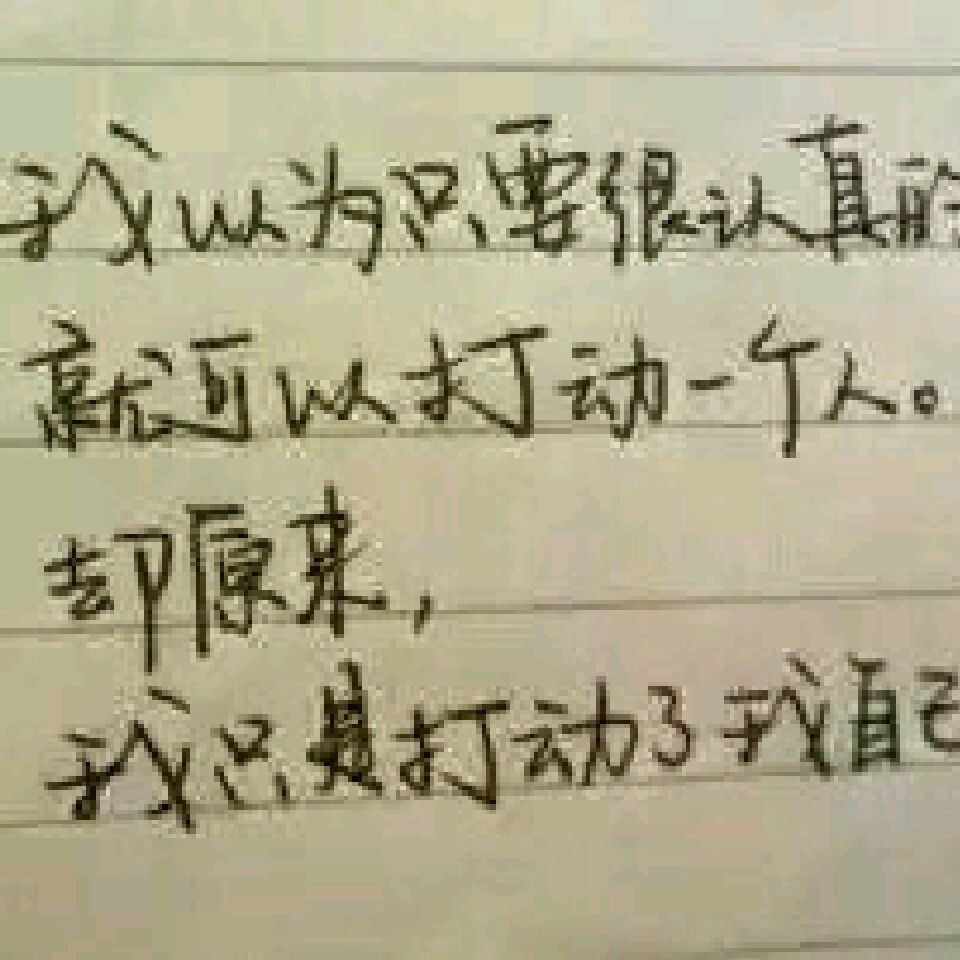 我以为只要很认真的
就可以打动一个人。
却原来,
我只是打动了我自己